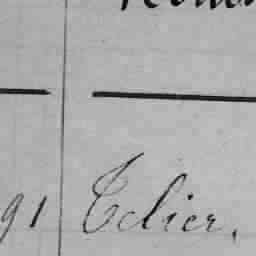 91 Telier.